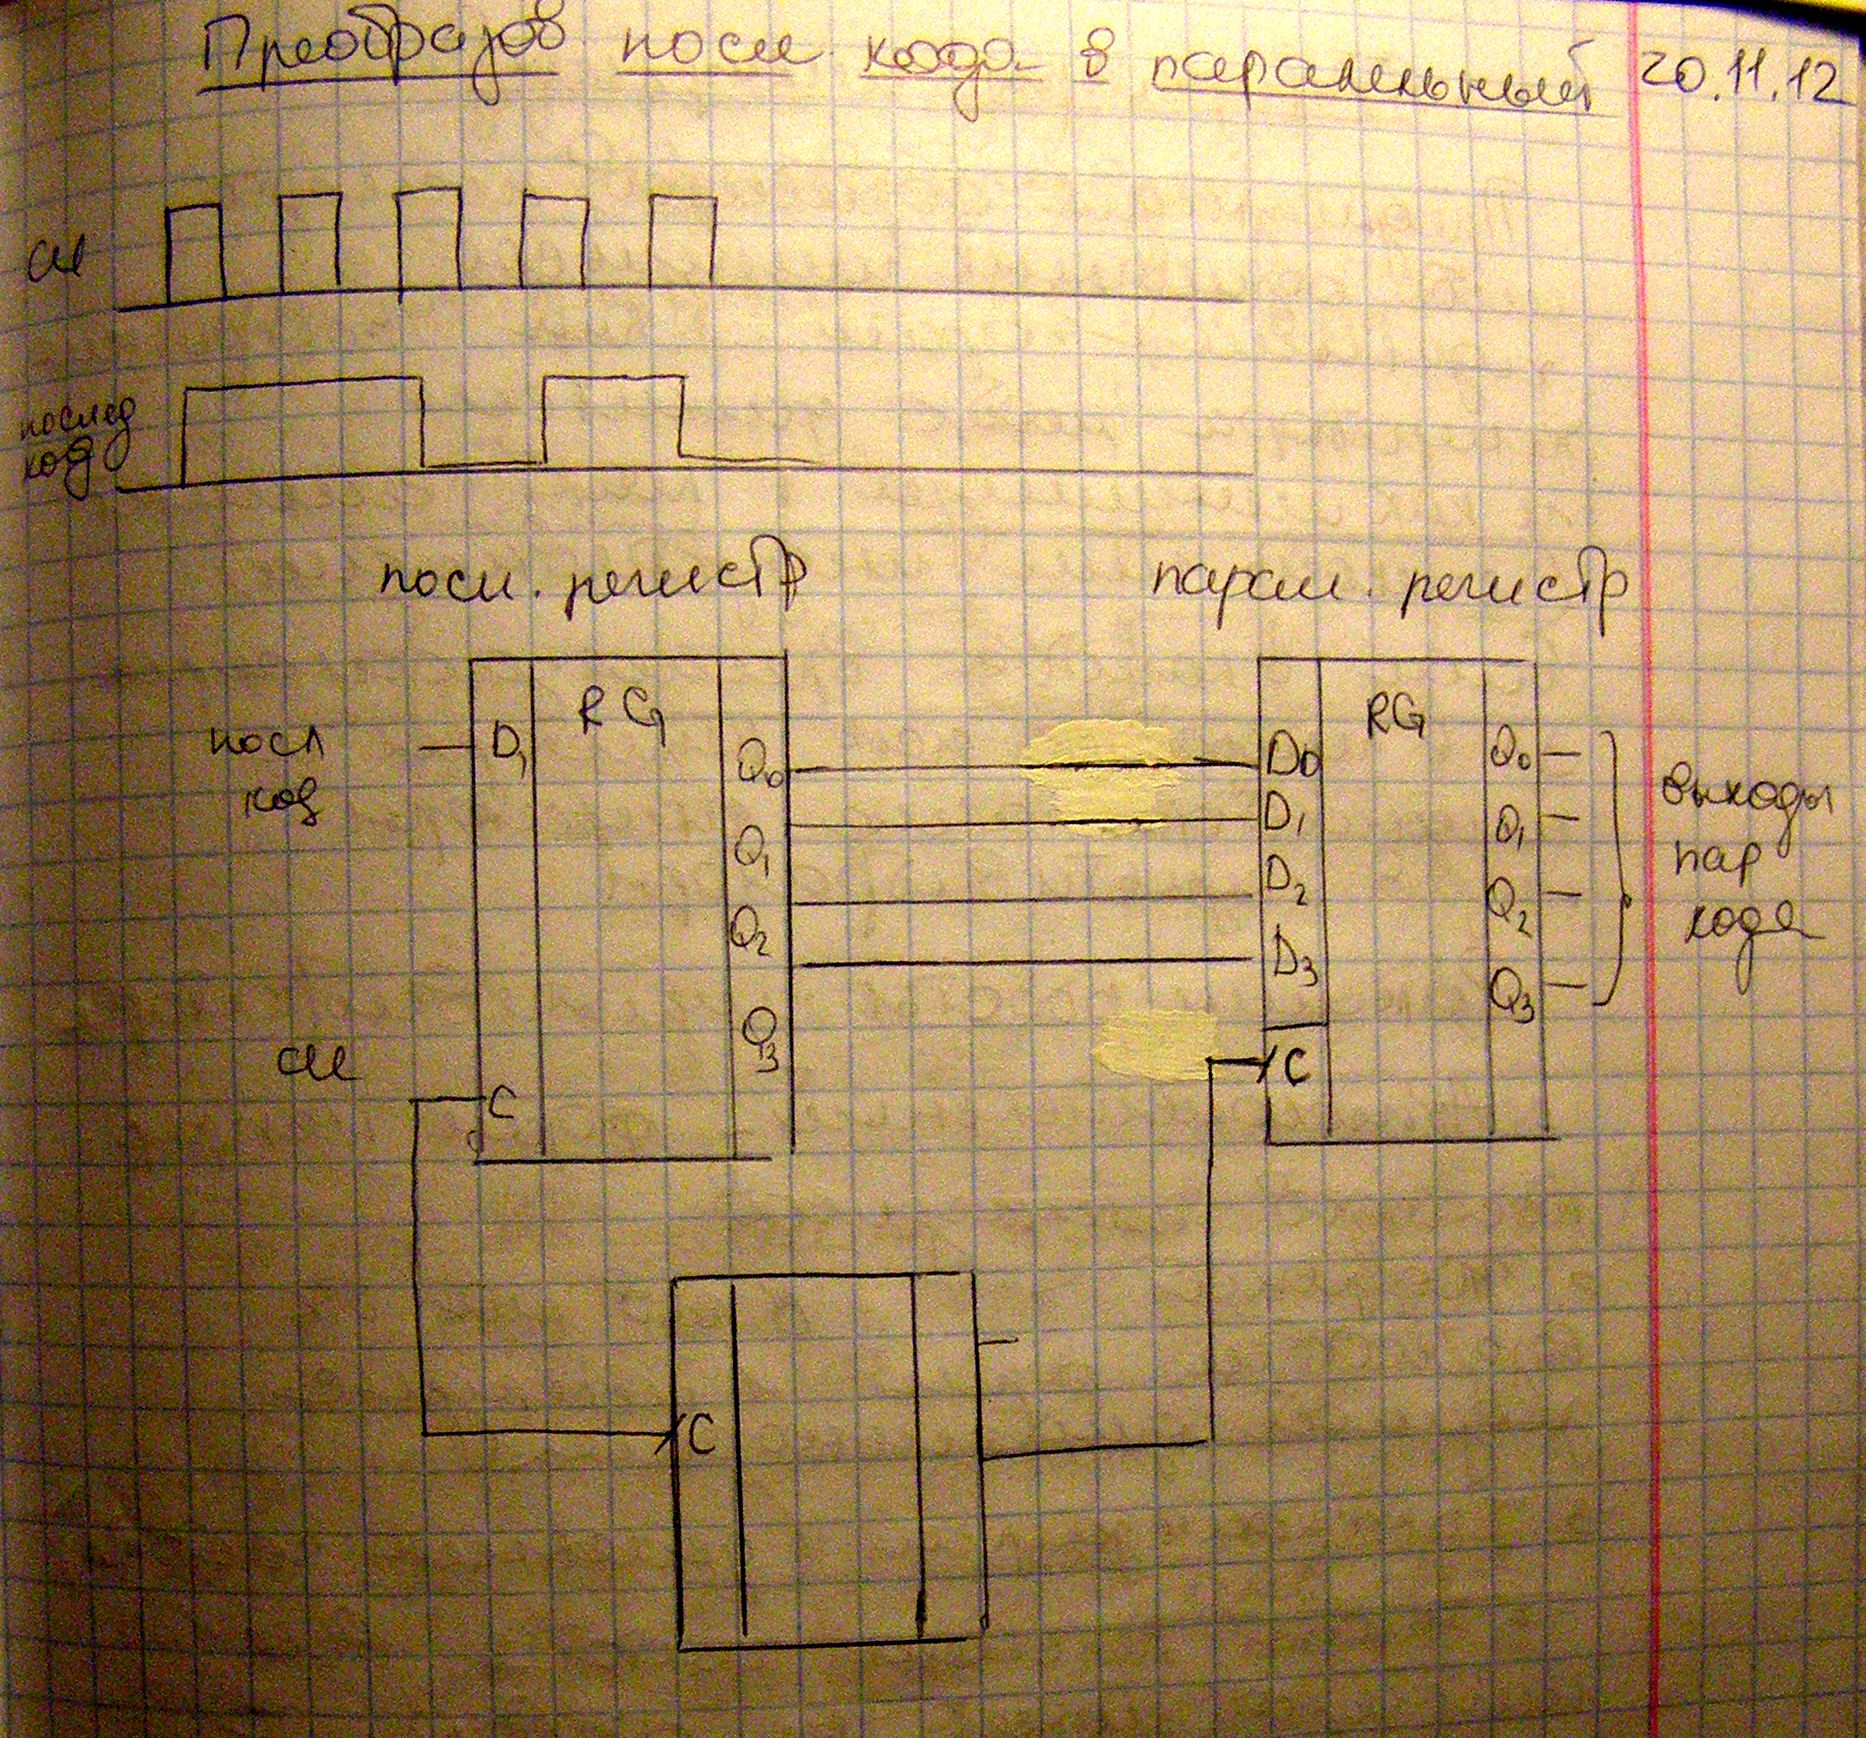 Преобразов посл кода в паралельный 20.11.12
си
послед
код
посл. регистр парал. регистр
посл
код
D1 RG Q0
Q1
Q2
Q3
си
C
D0 RG Q0
D1 Q1
D2 Q2
D3 Q3
C
выходы
пар
кода
C